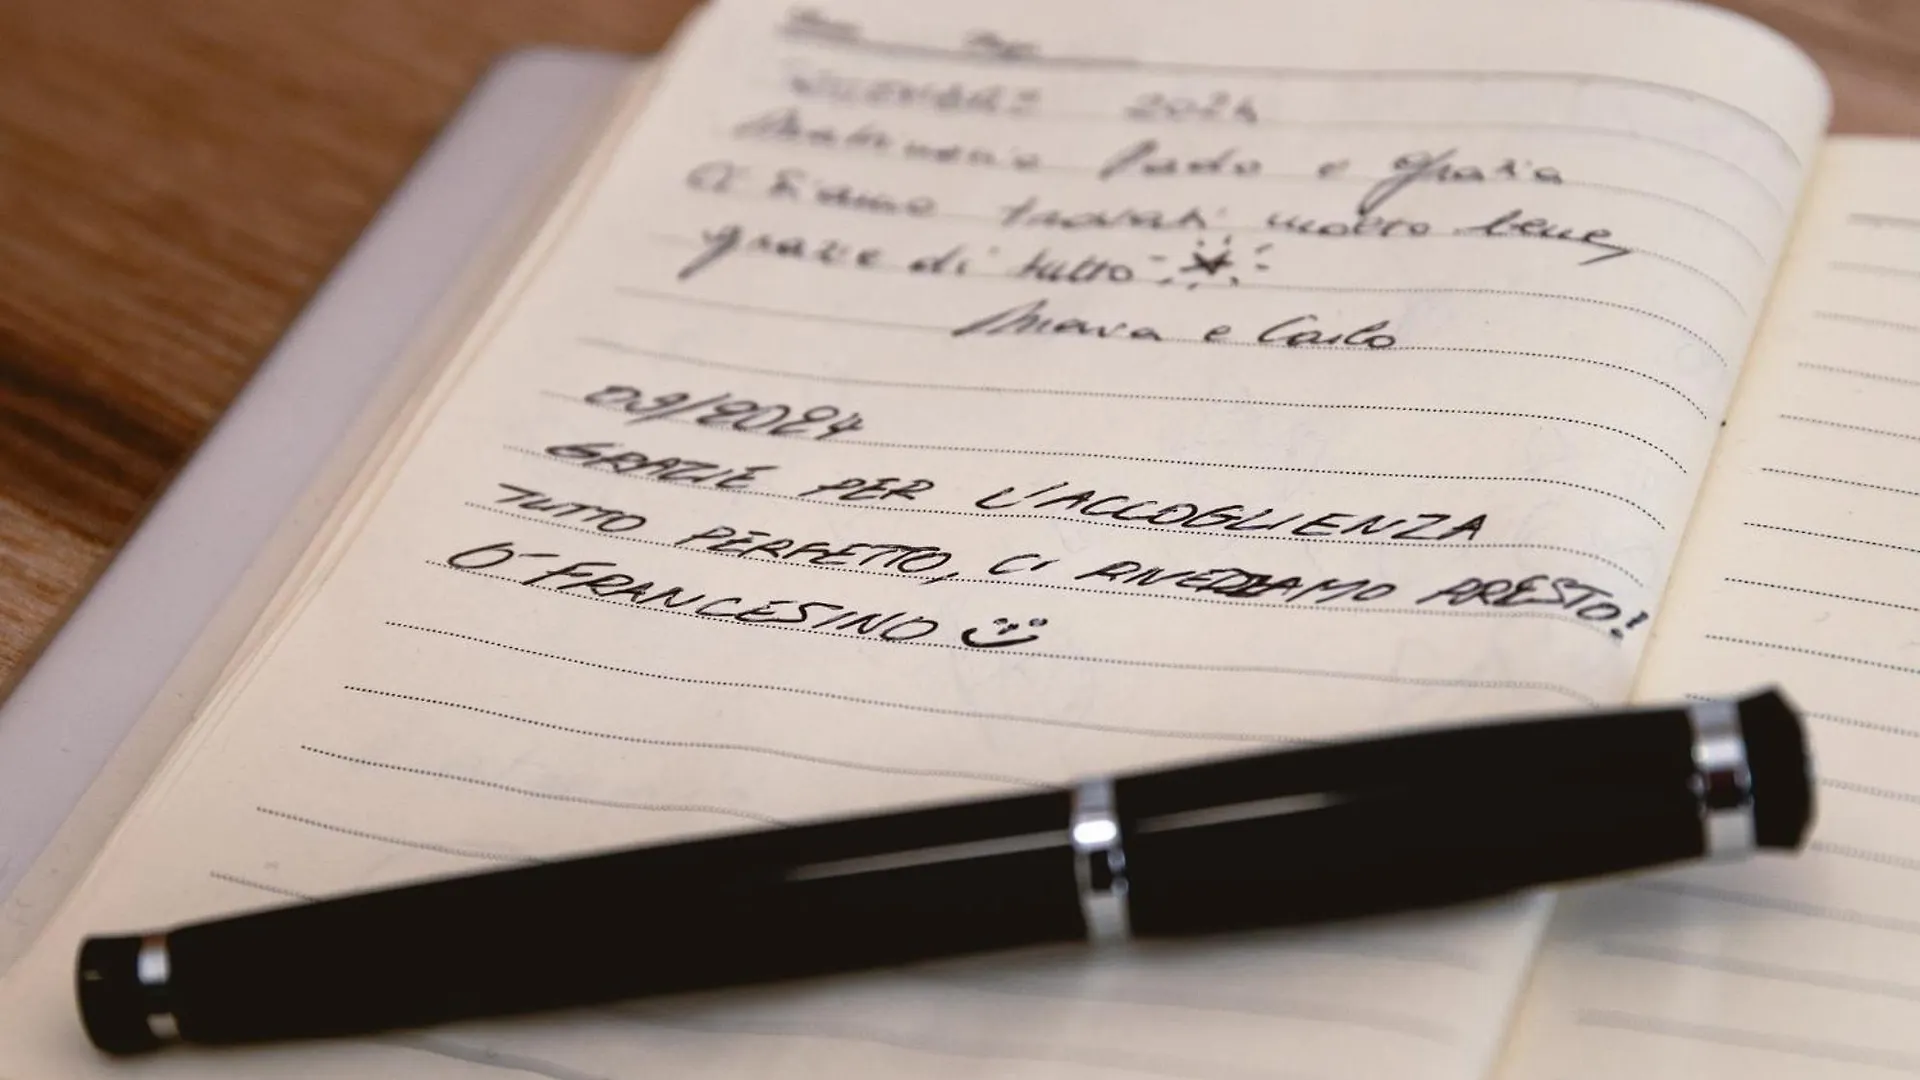 2024
Paolo e Grazia
Ci siamo trovati molto bene,
grazie di tutto
Mara e Carlo
09/2024
GRAZIE PER L'ACCOGLIENZA
TUTTO PERFETTO, CI RIVEDIAMO PRESTO!
O' FRANCESINO